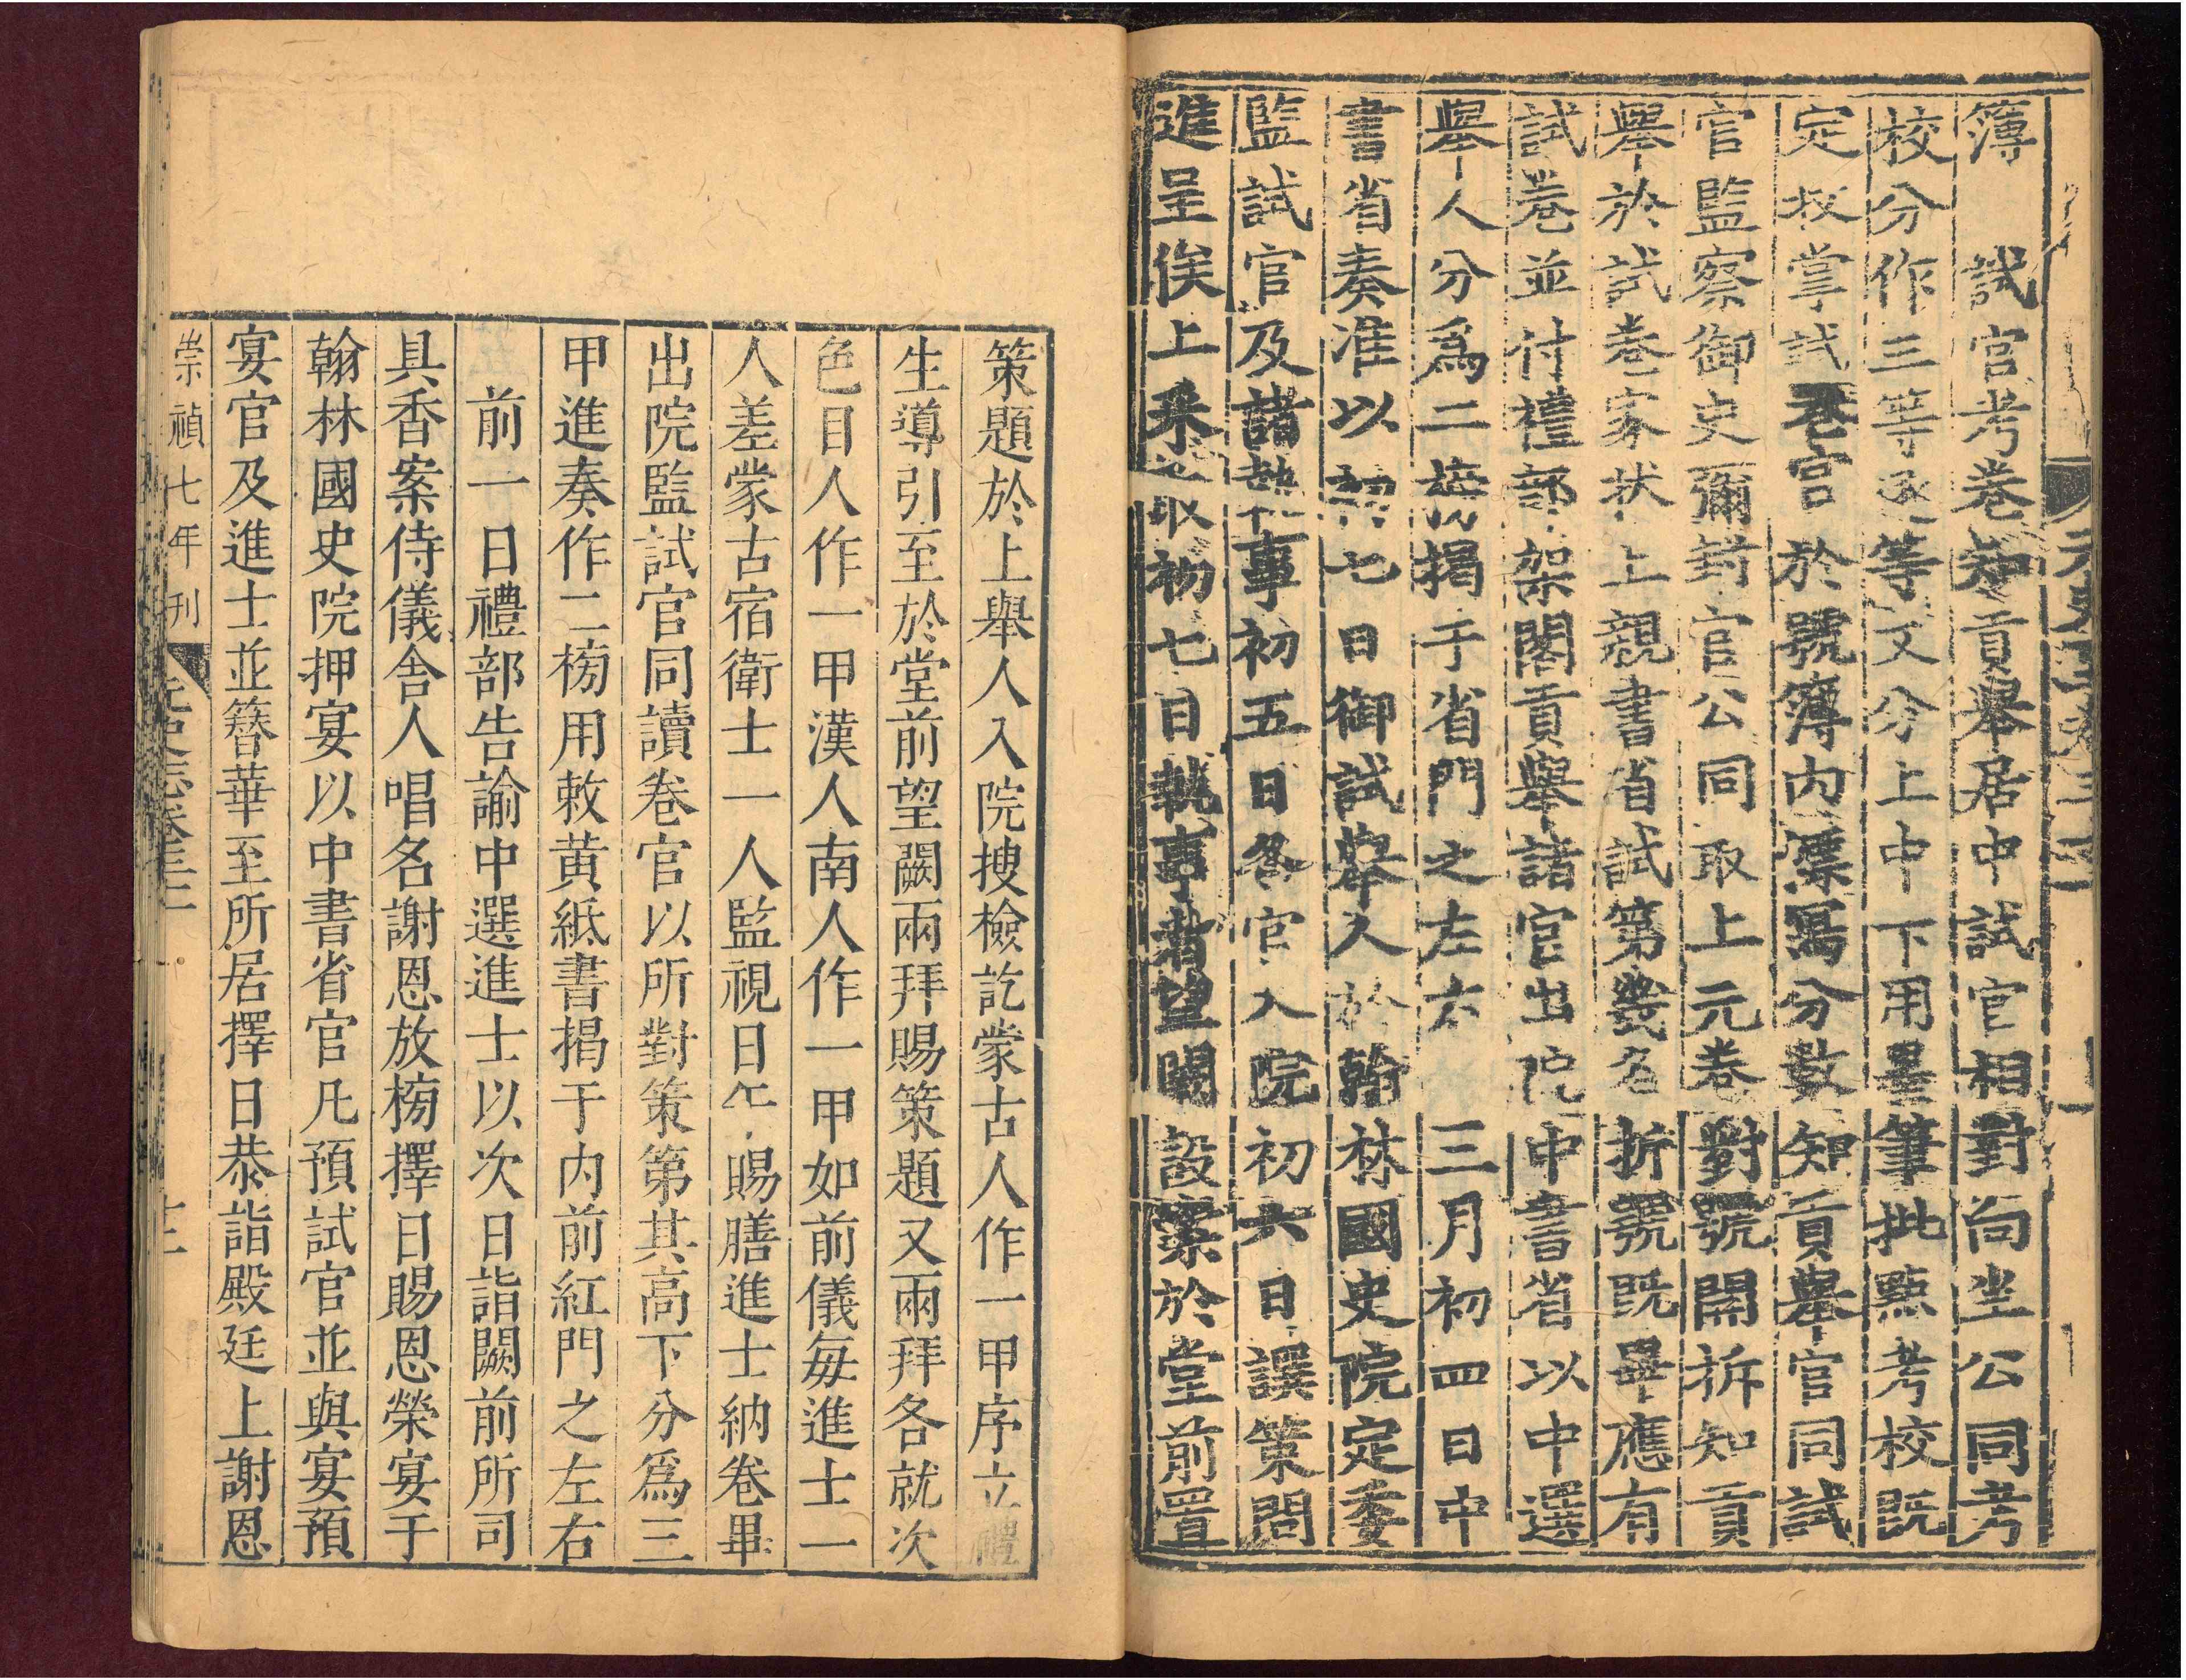 簿　試官考卷知貢舉居中試官相對向坐公同考
校分作三等逐等又分上中下用墨筆批點考校既
定收掌試卷官於號簿內標寫分數知貢舉官同試
官監察御史彌封官公同取上元卷對號開拆知貢
舉於試卷家狀上親書省試第幾名拆號既畢應有
試卷並付禮部架閣貢舉諸官出院中書省以中選
舉人分爲二榜揭于省門之左右三月初四日中
書省奏准以初七日御試舉人於翰林國史院定委
監試官及諸執事初五日各官入院初六日譔策問
進呈俟上采取初七日執事者望闕設案於堂前置
策題於上舉人入院搜檢訖蒙古人作一甲序立禮
生導引至於堂前望闕兩拜賜策題又兩拜各就次
色目人作一甲漢人南人作一甲如前儀每進士一
人差蒙古宿衛士一人監視日午賜膳進士納卷畢
出院監試官同讀卷官以所對策第其高下分爲三
甲進奏作二榜用敕黃紙書揭于內前紅門之左右
前一日禮部告諭中選進士以次日詣闕前所司
具香案侍儀舍人唱名謝恩放榜擇日賜恩榮宴于
翰林國史院押宴以中書省官凡預試官並與宴預
宴官及進士並簪華至所居擇日恭詣殿廷上謝恩
崇禎七年刊